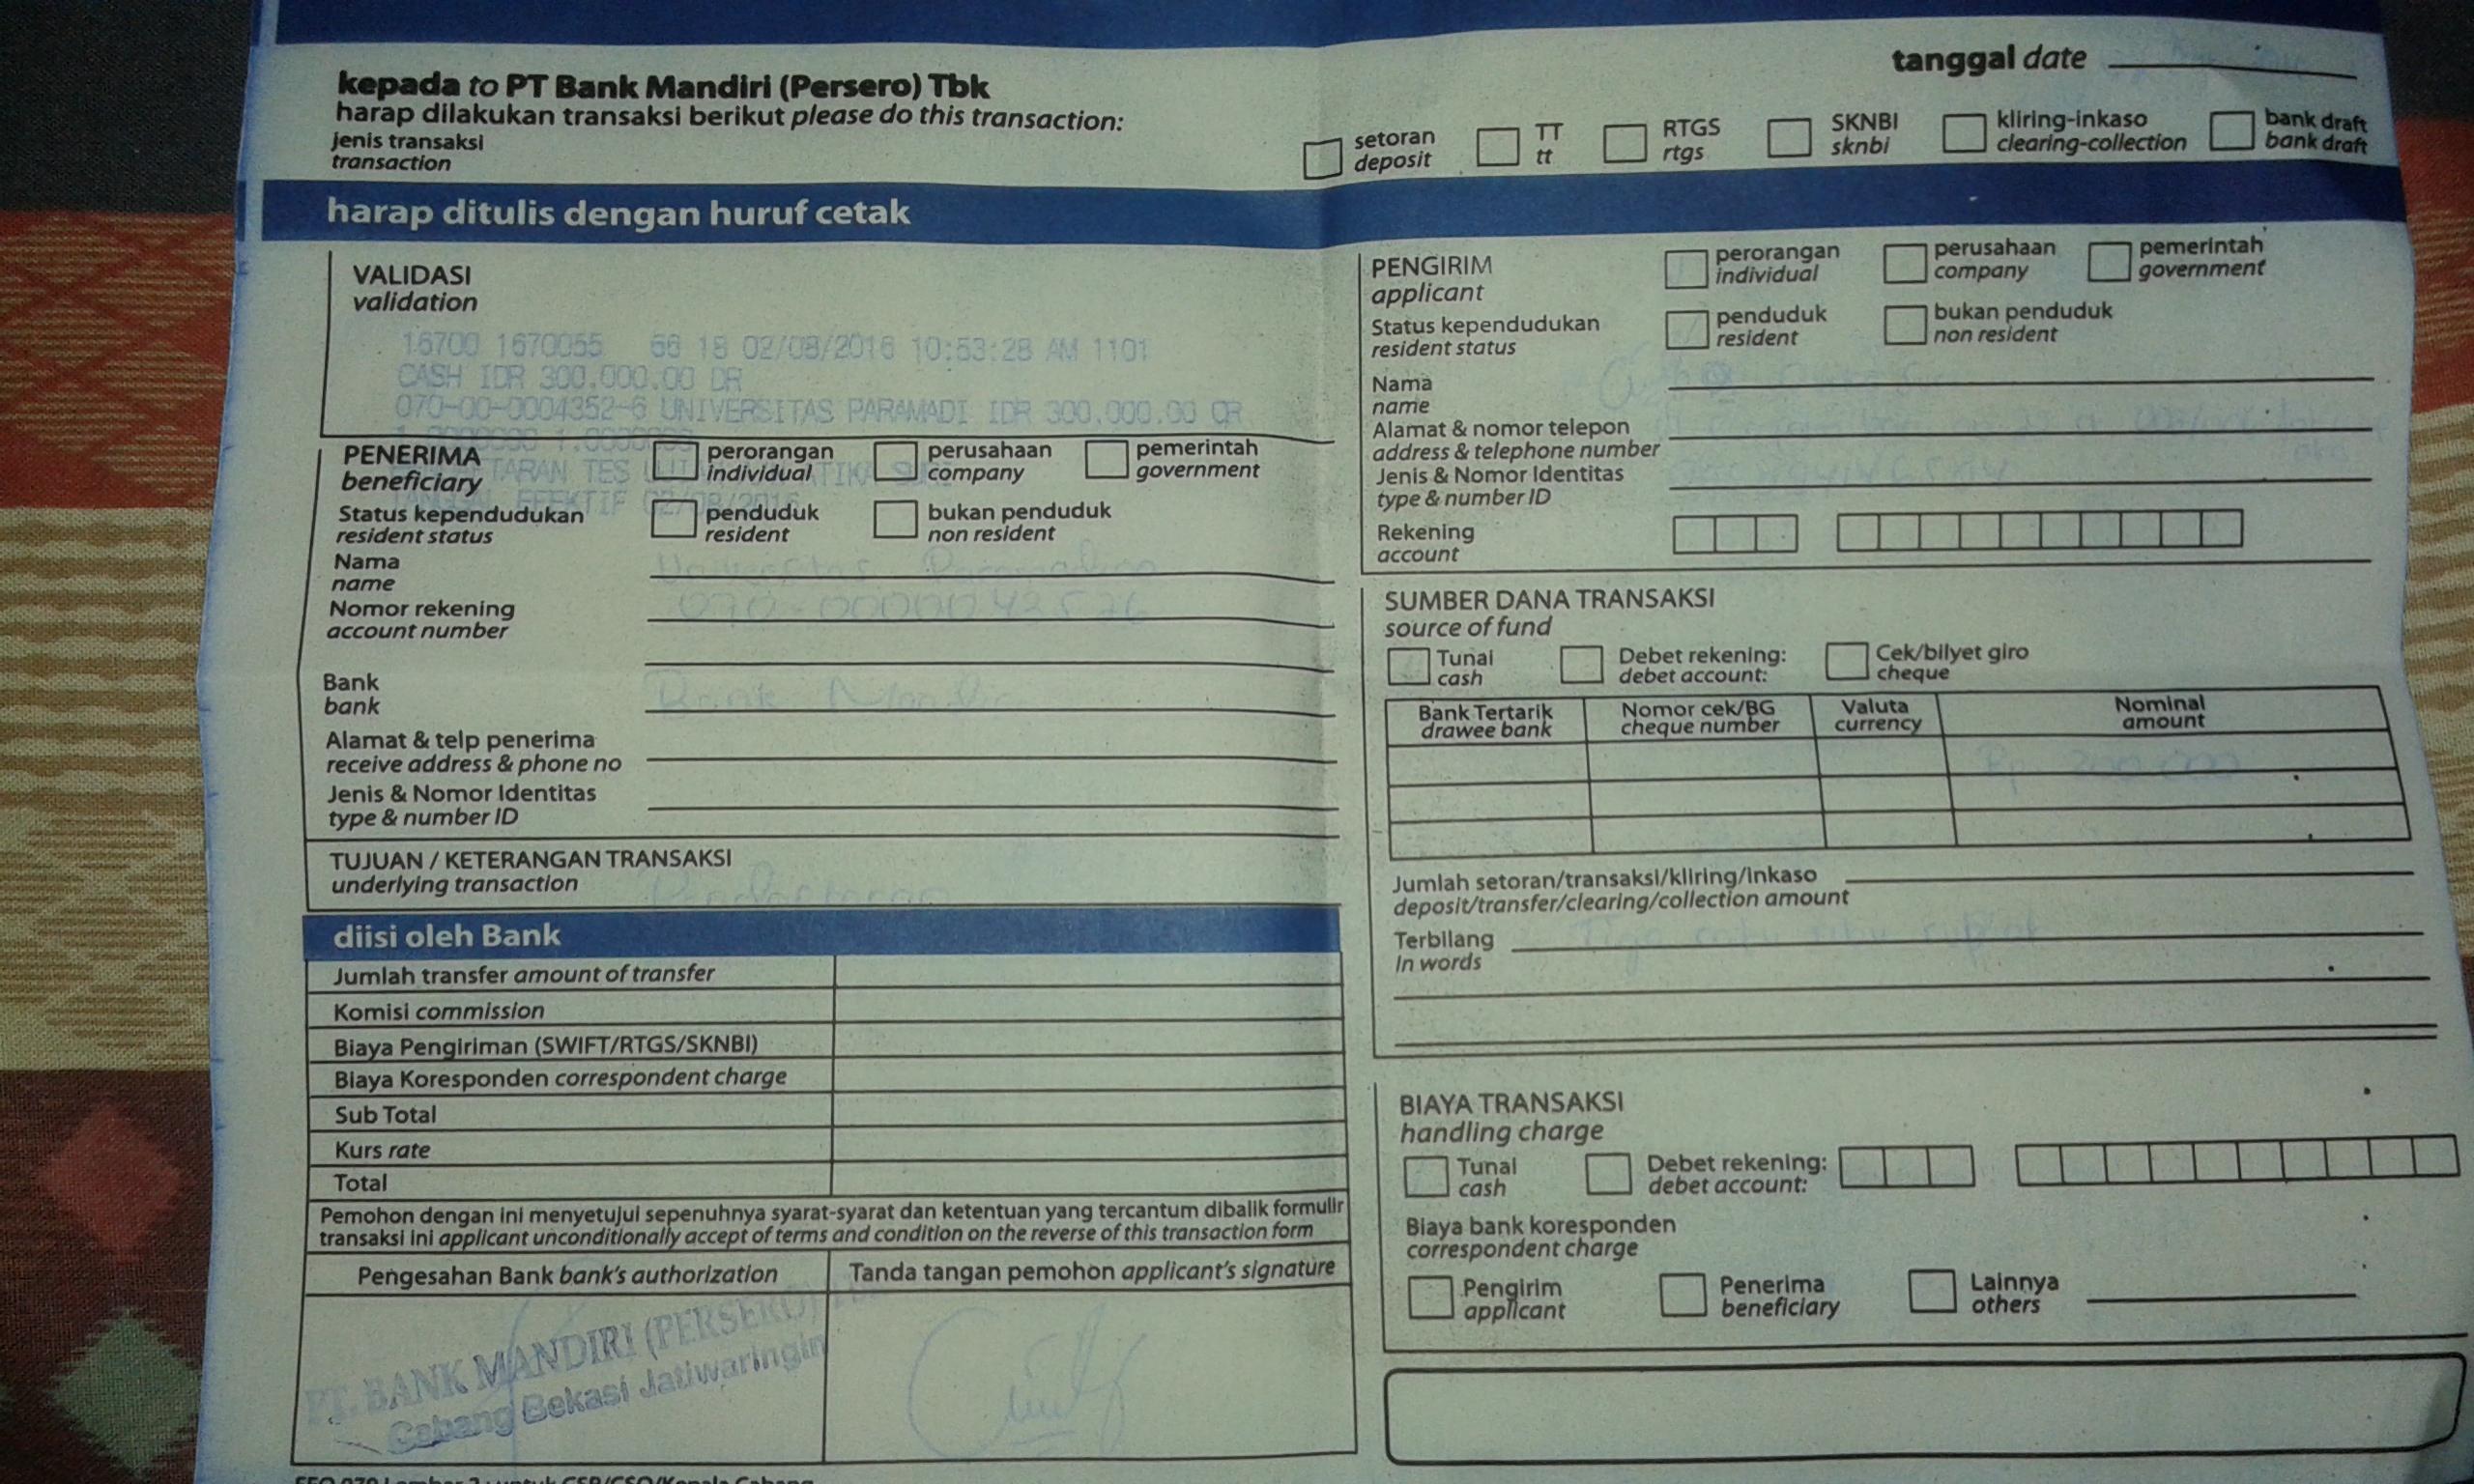 tanggal date
kepada to PT Bank Mandiri (Persero) Tbk
harap dilakukan transaksi berikut please do this transaction:
jenis transaksi
transaction
setoran
deposit
TT
tt
RTGS
rtgs
SKNBI
sknbi
kliring-inkaso
clearing-collection
bank draft
bank draft
harap ditulis dengan huruf cetak
VALIDASI
validation
16700 1670055 66 18 02/08/2016 10:53:28 AM 1101
CASH IDR 300.000.00 DR
070-00-0004352-6 UNIVERSITAS PARAMADI IDR 300.000.00 CR
PENERIMA
beneficiary
perorangan
individual
perusahaan
company
pemerintah
government
TARAN TES
EFEKTIF 02/08/2016
Status kependudukan
resident status
penduduk
resident
bukan penduduk
non resident
Nama
name
Universitas Paramadina
Nomor rekening
account number
Bank
bank
Bank Mandiri
Alamat & telp penerima
receive address & phone no
Jenis & Nomor Identitas
type & number ID
TUJUAN / KETERANGAN TRANSAKSI
underlying transaction
Pendaftaran
diisi oleh Bank
Jumlah transfer amount of transfer
Komisi commission
Biaya Pengiriman (SWIFT/RTGS/SKNBI)
Biaya Koresponden correspondent charge
Sub Total
Kurs rate
Total
Pemohon dengan ini menyetujui sepenuhnya syarat-syarat dan ketentuan yang tercantum dibalik formulir
transaksi ini applicant unconditionally accept of terms and condition on the reverse of this transaction form
Pengesahan Bank bank's authorization
Tanda tangan pemohon applicant's signature
PT. BANK MANDIRI (PERSERO)
Cabang Bekasi Jatiwaringin
PENGIRIM
applicant
perorangan
individual
perusahaan
company
pemerintah
government
Status kependudukan
resident status
penduduk
resident
bukan penduduk
non resident
Nama
name
Alamat & nomor telepon
address & telephone number
Jenis & Nomor Identitas
type & number ID
Rekening
account
SUMBER DANA TRANSAKSI
source of fund
Tunai
cash
Debet rekening:
debet account:
Cek/bilyet giro
cheque
Bank Tertarik
drawee bank
Nomor cek/BG
cheque number
Valuta
currency
Nominal
amount
Rp 300.000
Jumlah setoran/transaksi/kliring/inkaso
deposit/transfer/clearing/collection amount
Terbilang
In words
Tiga ratus ribu rupiah
BIAYA TRANSAKSI
handling charge
Tunai
cash
Debet rekening:
debet account:
Biaya bank koresponden
correspondent charge
Pengirim
applicant
Penerima
beneficiary
Lainnya
others